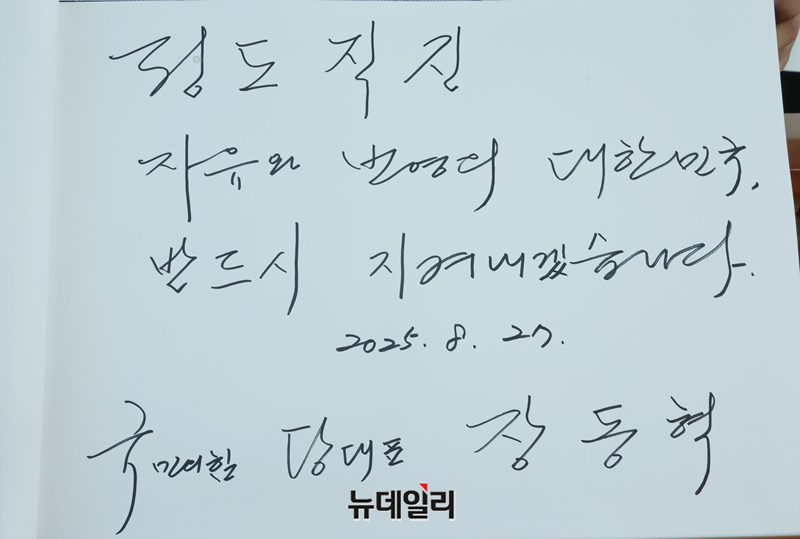 정도직진
자유와 번영의 대한민국,
반드시 지켜내겠습니다.
2025. 8. 27.
국민의힘 당대표 장동혁
뉴데일리